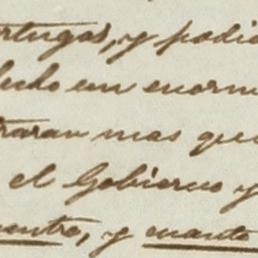 rtugal, y podia
hecho un enorm
traran mas que
el Gobierno y
uentra, y cuanto